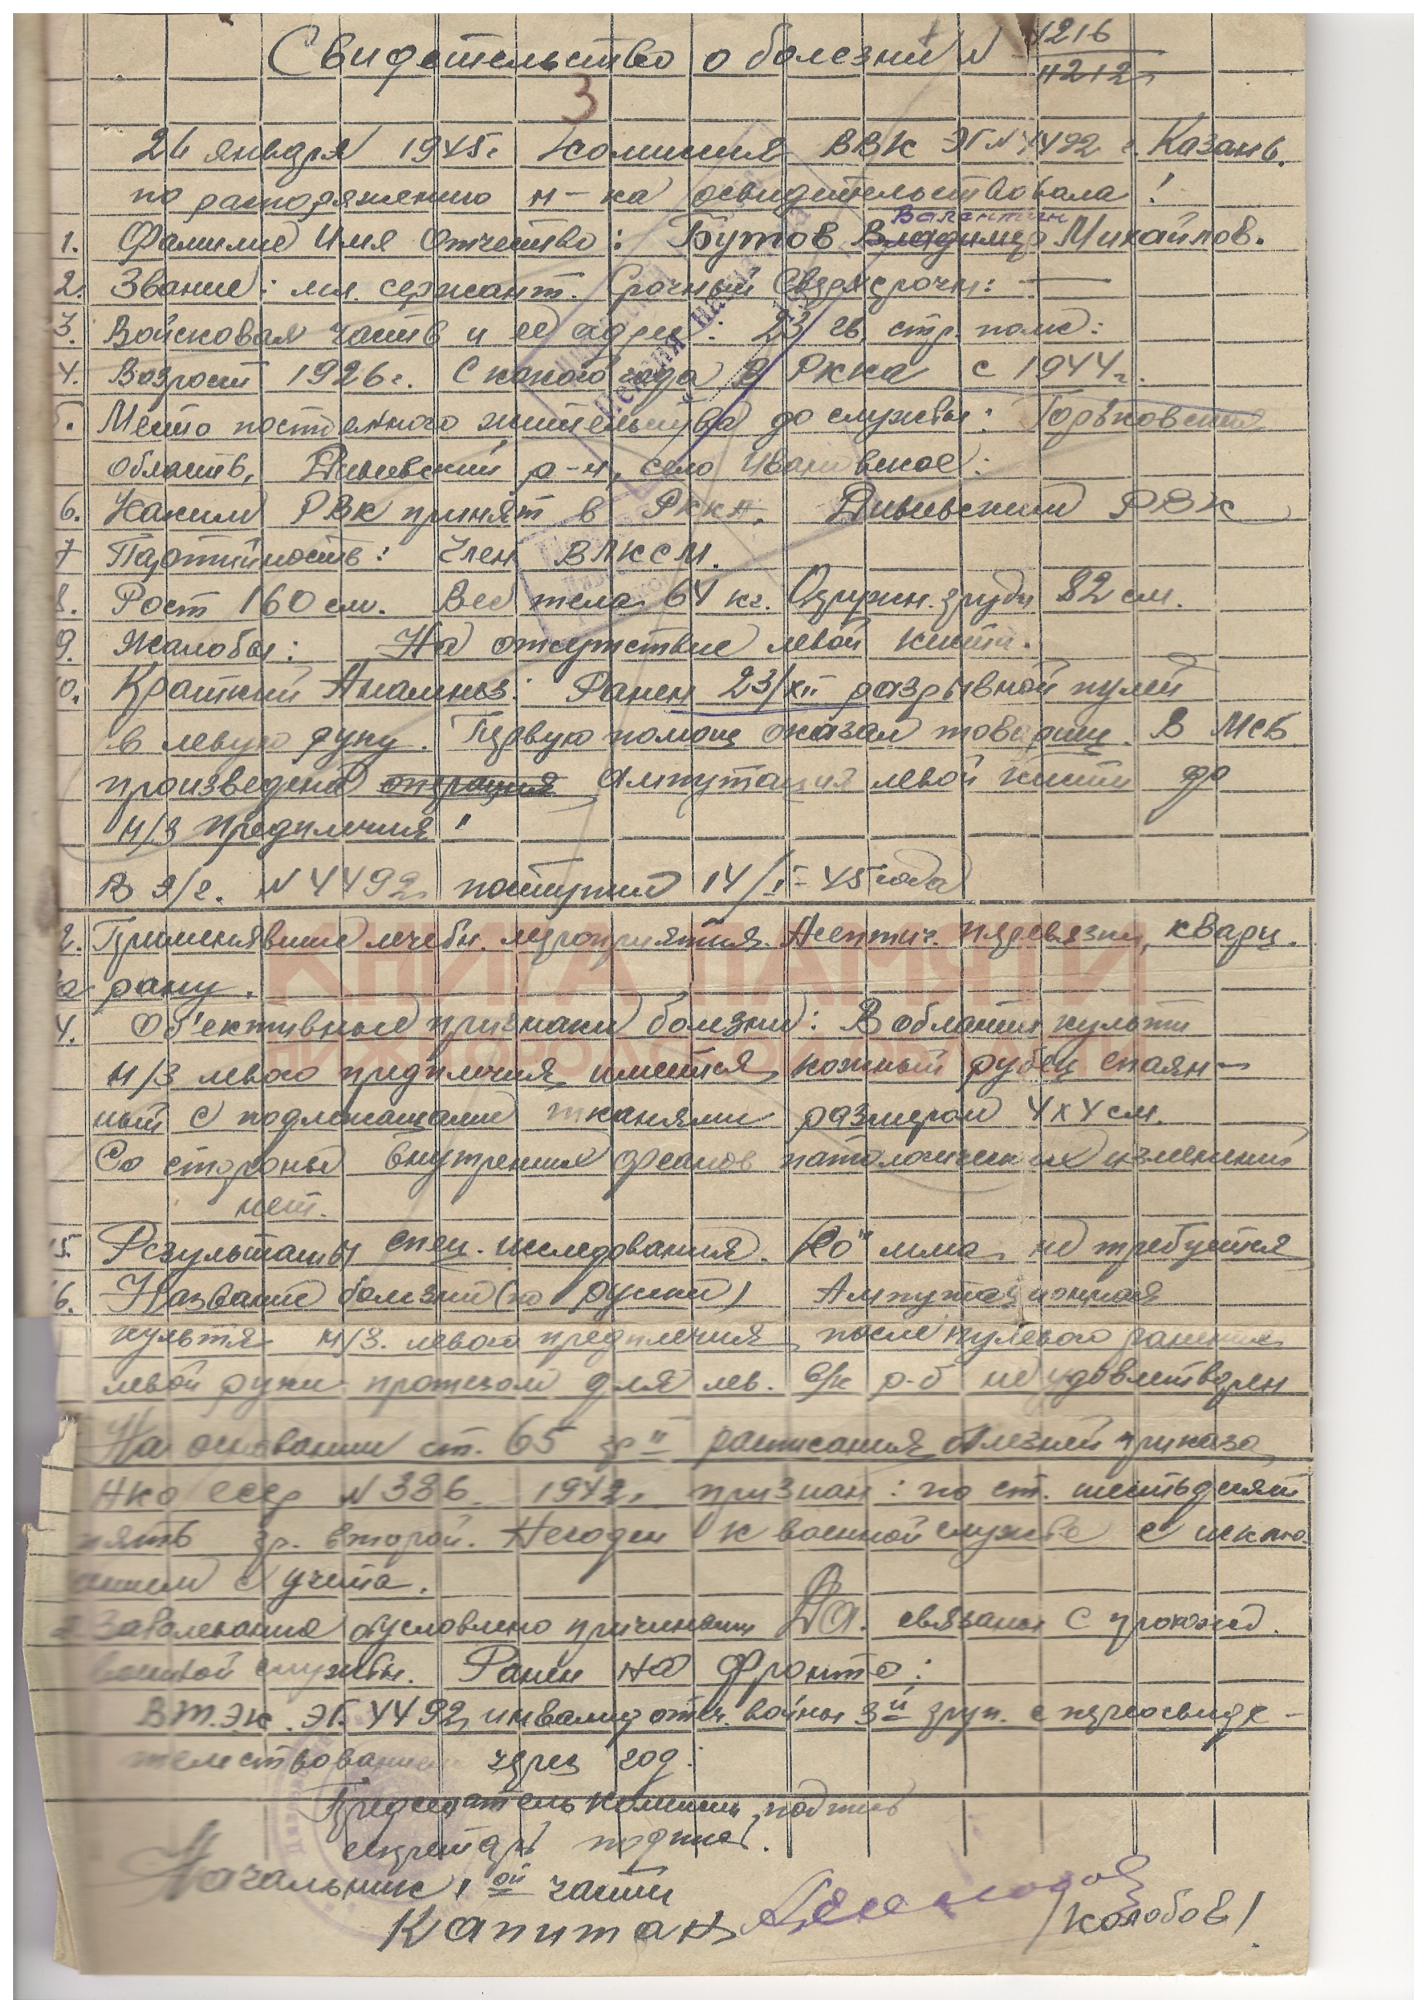 Свидетельство о болезни N 1216
11212
3
26 января 1945г Комиссия ВВК ЭГ N 4492 г. Казань.
по распоряжению н-ка освидетельствовала!
Валентин
1. Фамилие Имя Отчество: Бутов Владимир Михайлов.
2. Звание: мл. сержант. Срочный Сверхсрочн: —
3. Войсковая часть и ее адрес: 23 гв. стр. полк:
4. Возраст 1926г. С какого года в РККА с 1944г.
5. Место постоянного жительства до службы: Горьковская
область, Дивеевский р-н, село Ивановское:
6. Каким РВК принят в РККА. Дивеевским РВК
7 Партийность: Член ВЛКСМ.
8. Рост 160 см. Вес тела 64 кг. Окружн. груди 82 см.
9. Жалобы: На отсутствие левой кисти.
10. Краткий Анамнез: Ранен 23/XII разрывной пулей
в левую руку. Первую помощ оказал товарищ. В МСБ
произведена операция Ампутация левой кисти до
н/3 предплечия!
В э/г. N 4492 поступил 14/I-45 года
2. Применявшие лечебн. мероприятия. Асептич. перевязки, кварц.
на рану.
КНИГА ПАМЯТИ
4. Об'ективные признаки болезни: В области культи
НИЖЕГОРОДСКОЙ ОБЛАСТИ
н/3 левого предплечия имеется кожный рубец спаян-
ный с подлежащами тканями размером 4х4 см.
Со стороны внутренних органов патологических изменений
нет.
15. Результаты спец. исследования. не требуется
16. Название болезни (по русски) Ампутационная
культя н/3. левого предплечия после пулевого ранения
левой руки протезом для лев. р-б не удовлетворен
На основании ст. 65 гр II расписания болезней приказа
НКО СССР N 336 1942г признан: по ст. шестьдесят
пять гр. второй. Негоден к военной службе с исклю-
чением с учета.
Заболевание обусловлено причинами Да. связаны с прохожд.
военной службы. Ранен на фронте:
ВТЭК. ЭГ. 4492 инвалид отеч. войны 3й груп. с переосвиде-
тельствованием через год:
Председатель комиссии подпись
секретарь подпись.
Начальник 1ой части
Капитан /Колобов/